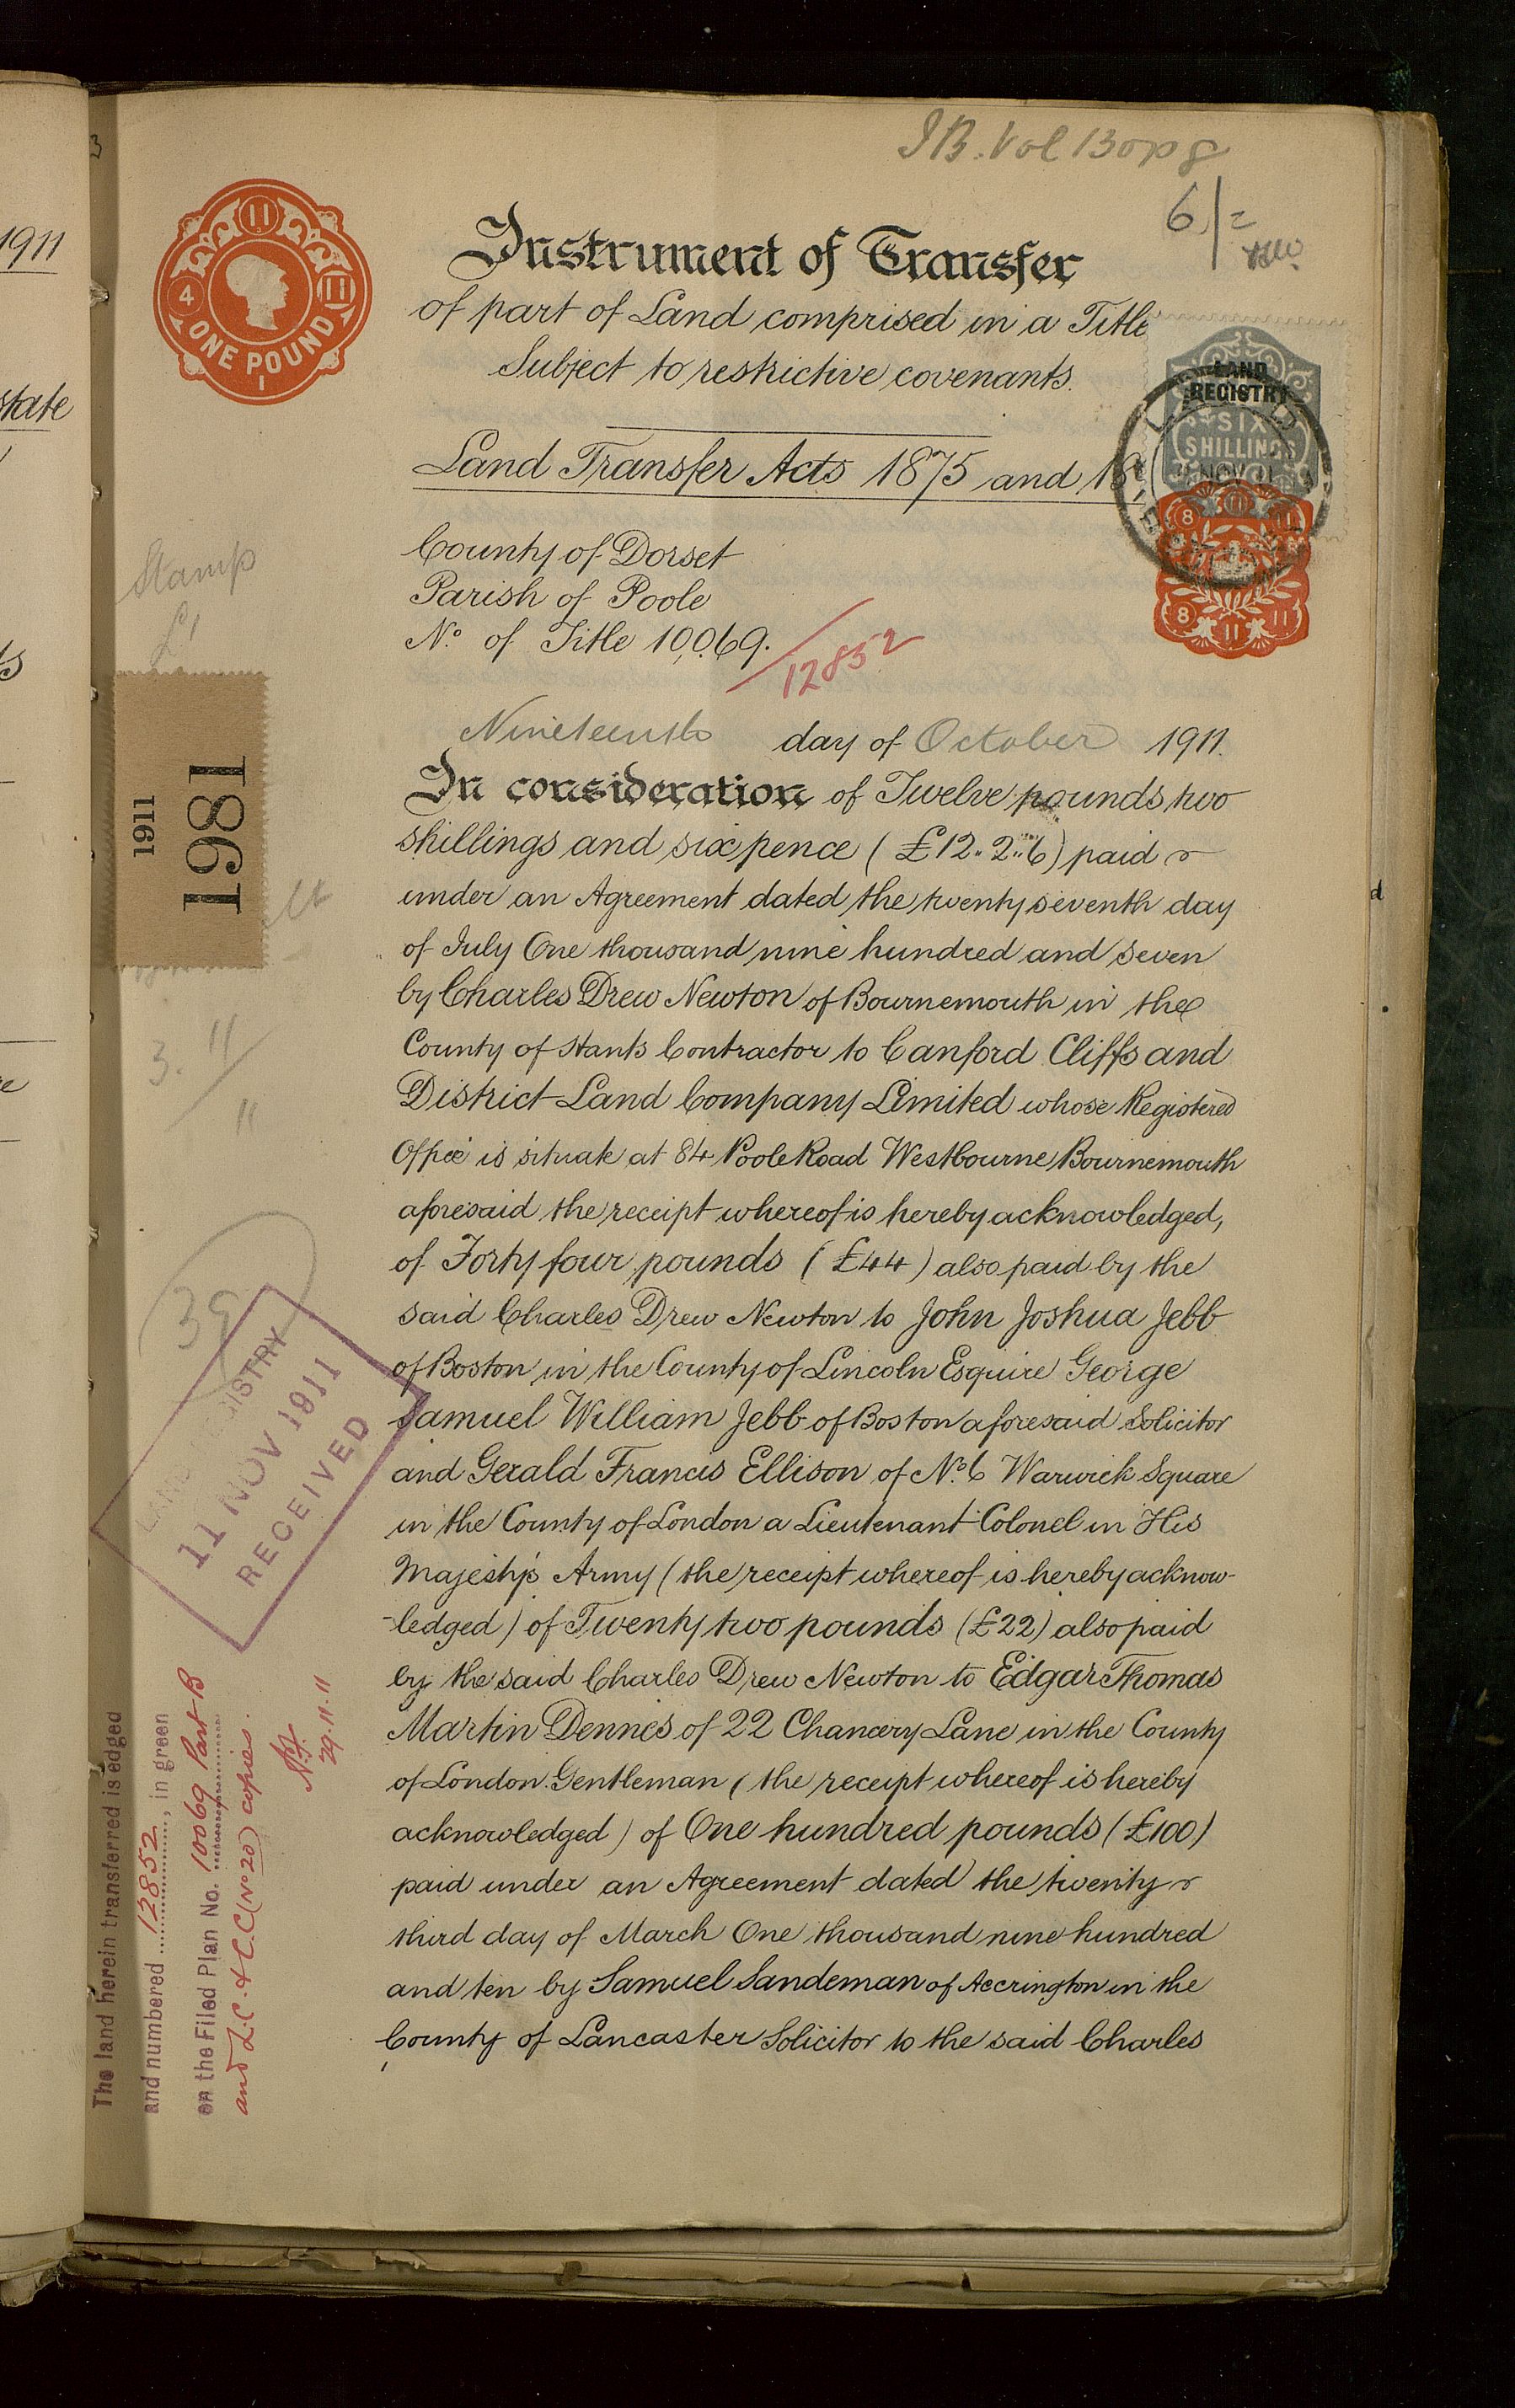 IB. Vol 130 p 8
6/=
11
4
11
ONE POUND
1
Instrument of Transfer
of part of Land comprised in a Title
Subject to restrictive covenants.
LAND
REGISTRY
SIX
SHILLINGS
NOV 11
8 11 11
8 11 11
Land Transfer Acts 1875 and 18
County of Dorset
Parish of Poole
No. of Title 10,069.
12852
Stamp
£1
1911
1981
3. 11
11
Nineteenth day of October 1911.
In consideration of Twelve pounds two
shillings and six pence (£12.. 2..6) paid
under an Agreement dated the twenty seventh day
of July One thousand nine hundred and seven
by Charles Drew Newton of Bournemouth in the
County of Hants Contractor to Canford Cliffs and
District Land Company Limited whose Registered
Office is situate at 84 Poole Road Westbourne Bournemouth
aforesaid the receipt whereof is hereby acknowledged,
of Forty four pounds (£44) also paid by the
said Charles Drew Newton to John Joshua Jebb
of Boston in the County of Lincoln Esquire George
Samuel William Jebb of Boston aforesaid Solicitor
and Gerald Francis Ellison of No. 6 Warwick Square
in the County of London a Lieutenant Colonel in His
Majesty's Army (the receipt whereof is hereby acknow-
-ledged) of Twenty two pounds (£22) also paid
by the said Charles Drew Newton to Edgar Thomas
Martin Dennes of 22 Chancery Lane in the County
of London Gentleman (the receipt whereof is hereby
acknowledged) of One hundred pounds (£100)
paid under an Agreement dated the twenty
third day of March One thousand nine hundred
and ten by Samuel Sandeman of Accrington in the
County of Lancaster Solicitor to the said Charles
LAND REGISTRY
11 NOV 1911
RECEIVED
The land herein transferred is edged
and numbered 12852, in green
on the Filed Plan No. 10069 Part B
and L.C. & C.C. (No 20) copies.
29.11.11
1911
state
d